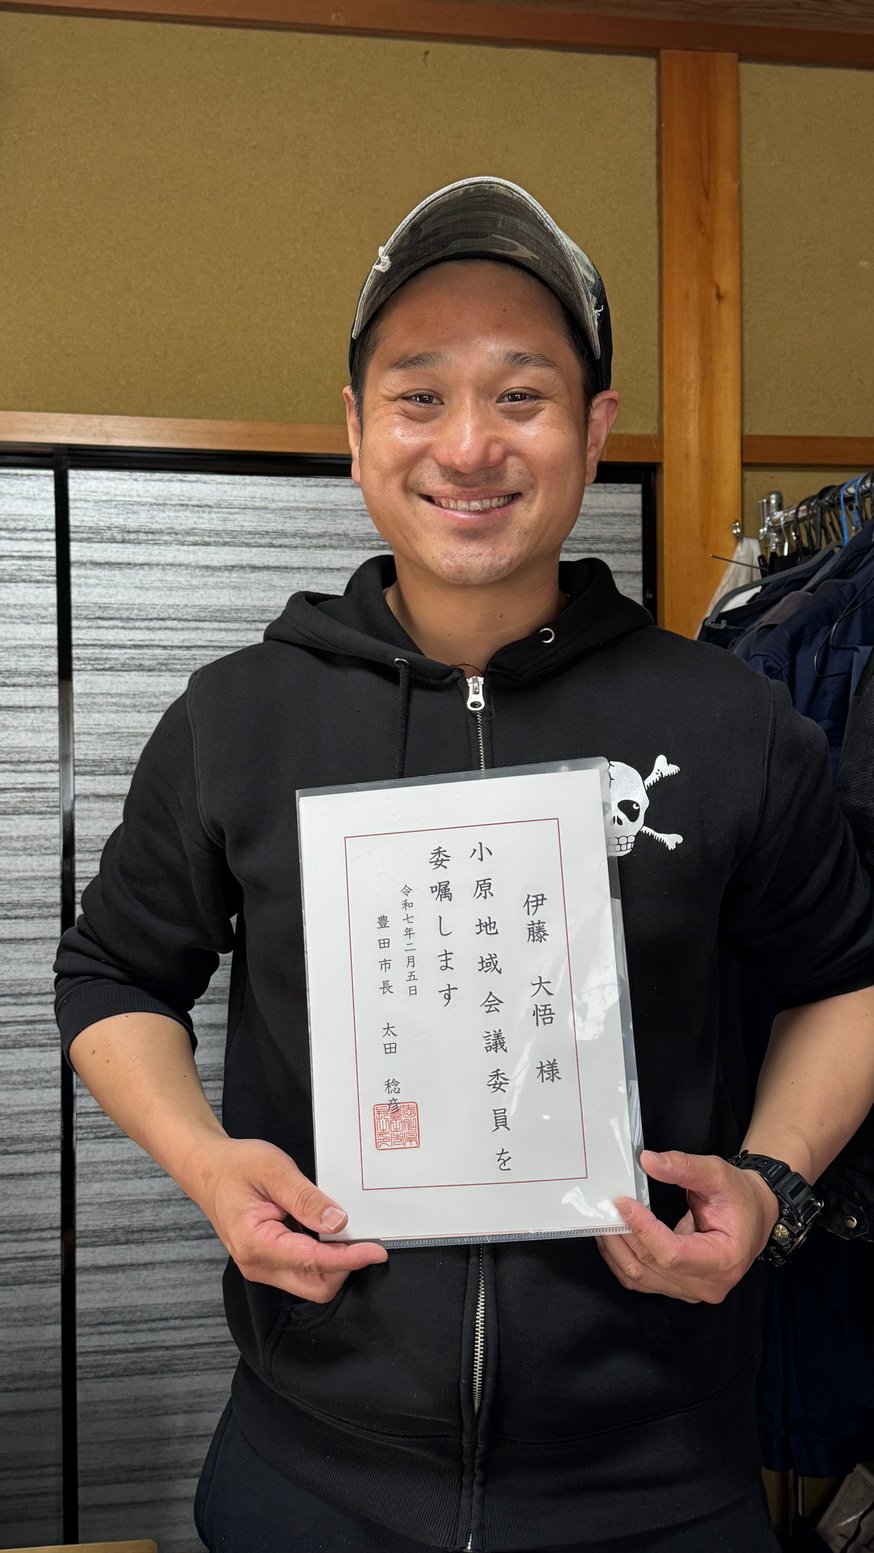 伊藤 大悟 様
小原地域会議委員を
委嘱します
令和七年二月五日
豊田市長 太田 稔彦